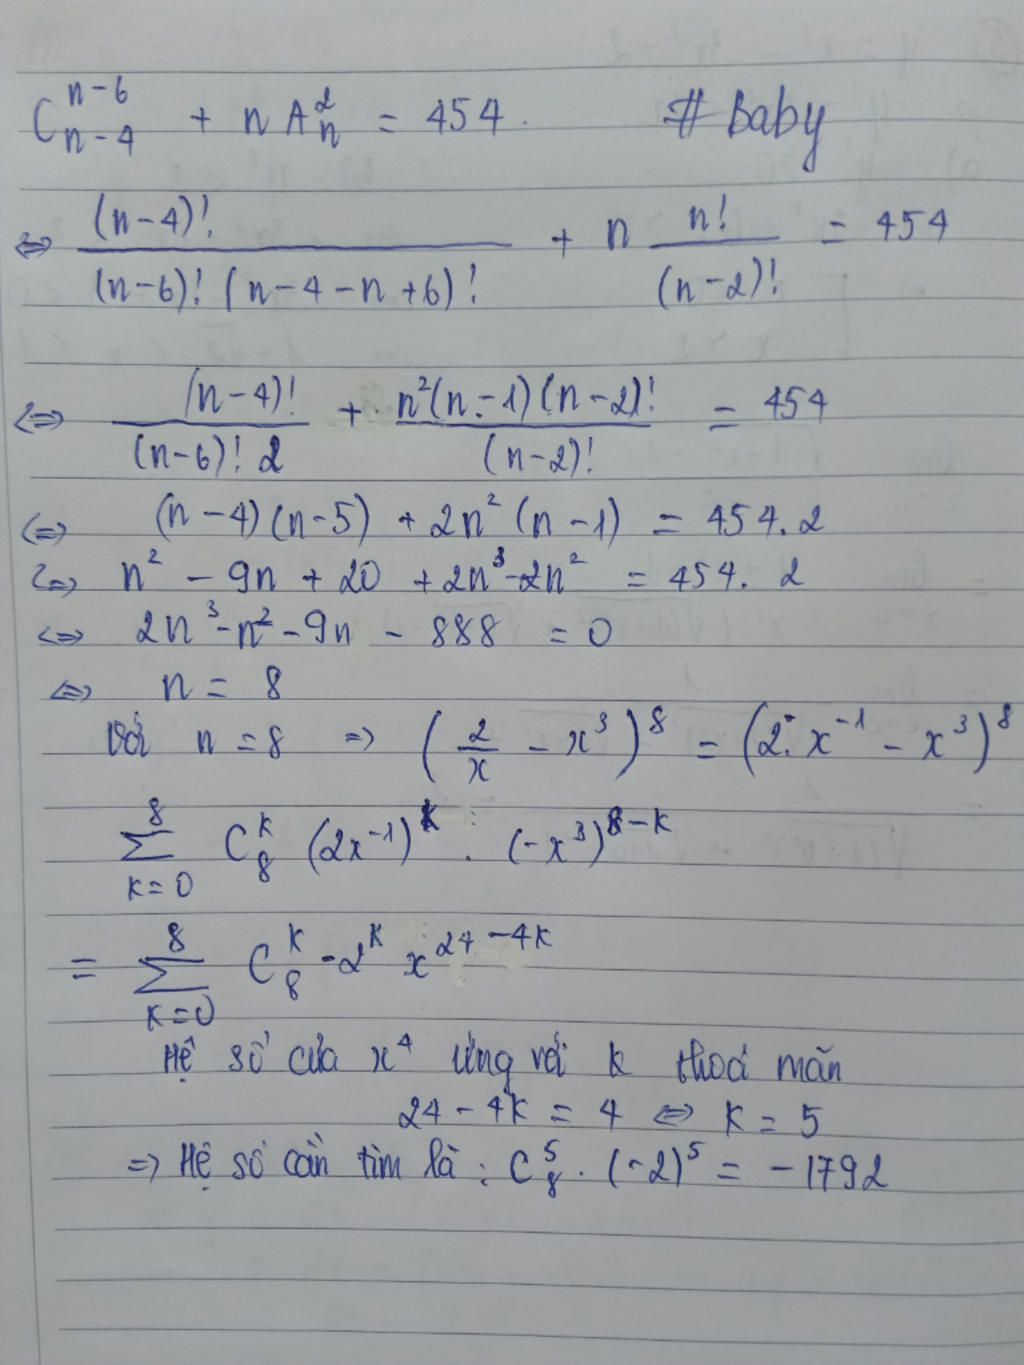 C_{n-4}^{n-6} + n A_n^2 = 454. # Baby
⇔ (n-4)! / (n-6)! (n-4-n+6)! + n n! / (n-2)! = 454
⇔ (n-4)! / (n-6)! 2 + n²(n-1)(n-2)! / (n-2)! = 454
⇔ (n-4)(n-5) + 2n²(n-1) = 454.2
⇔ n² - 9n + 20 + 2n³-2n² = 454. 2
⇔ 2n³-n²-9n - 888 = 0
⇔ n = 8
Với n = 8 ⇒ (2/x - x³)⁸ = (2.x⁻¹ - x³)⁸
∑_{k=0}^{8} C_8^k (2x⁻¹)^k . (-x³)^{8-k}
= ∑_{k=0}^{8} C_8^k -2^k x^{24-4k}
Hệ số của x⁴ ứng với k thoả mãn
24 - 4k = 4 ⇔ k = 5
⇒ Hệ số cần tìm là : C_8^5 . (-2)⁵ = -1792